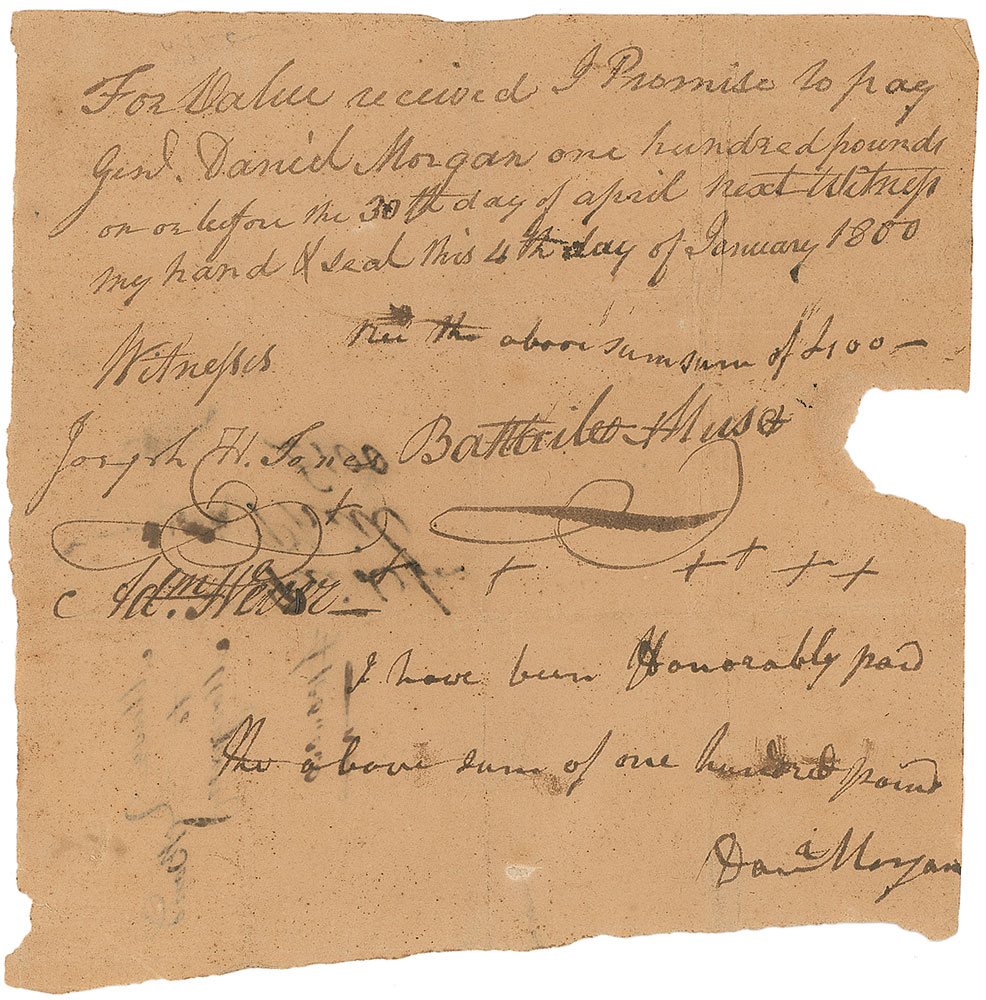 For Value received I Promise to pay
Genl. Daniel Morgan one hundred pounds
on or before the 30th day of april next Witness
my hand & seal this 4th day of January 1800
Witnesses
the above sum sum of £100 —
Joseph H. Jones Battaile Muse
I have been Honorably paid
the above sum of one hundred pound
Danl Morgan